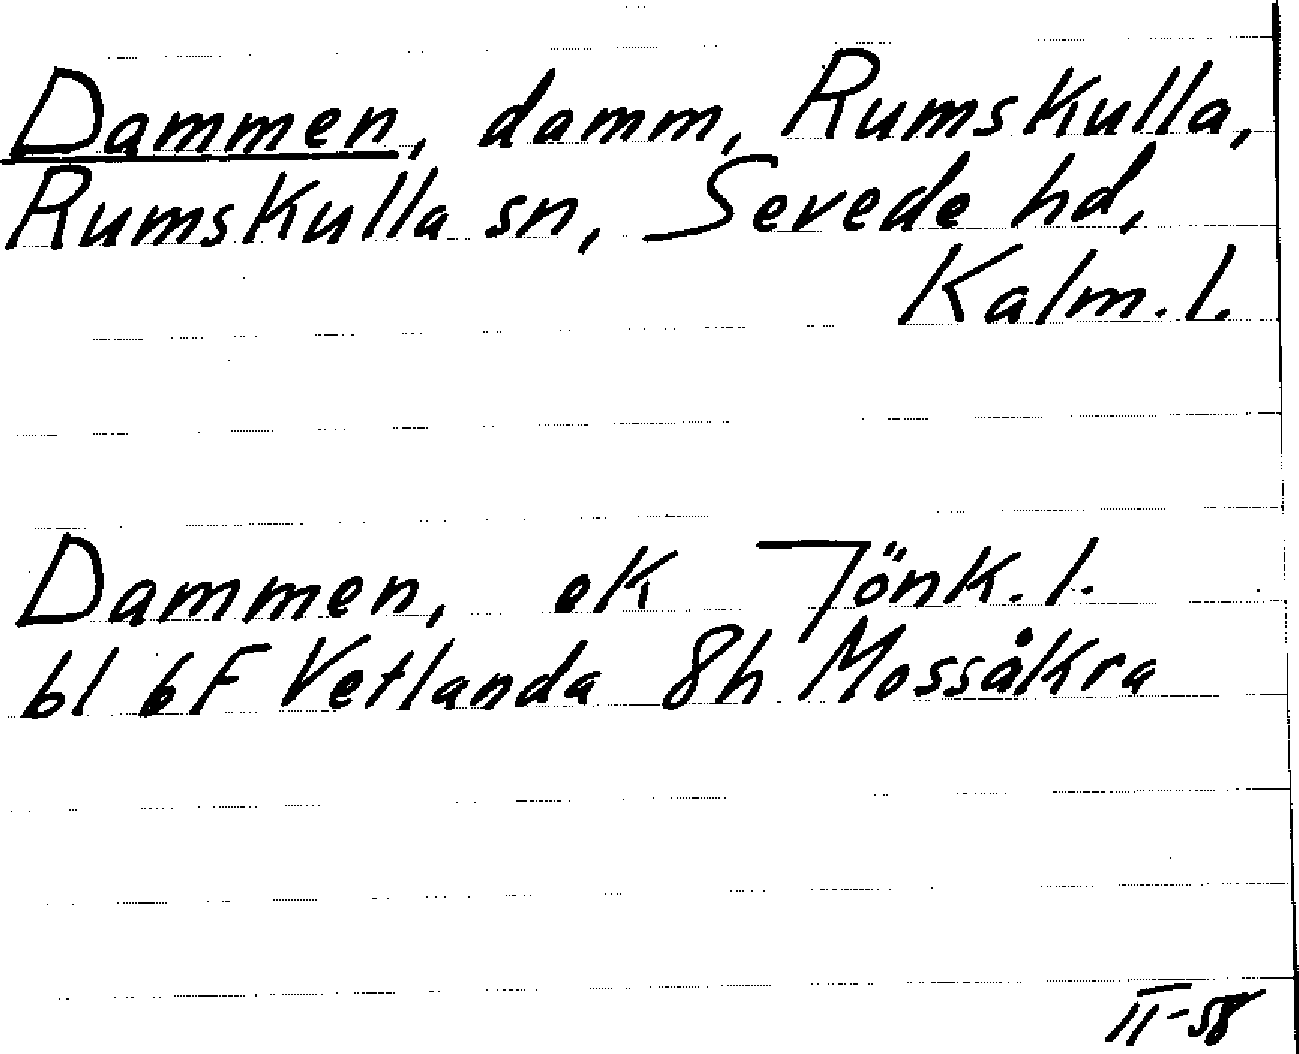 Dammen, damm, Rumskulla,
Rumskulla sn, Sevede hd,
Kalm. l.
Dammen, ek Jönk. l.
bl 6F Vetlanda 8h Mossåkra
II-58